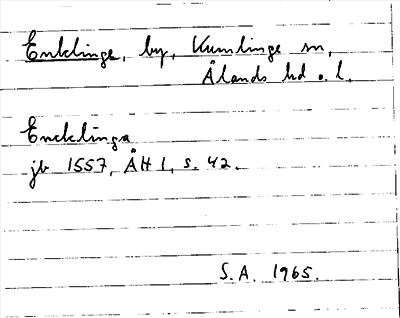 Enklinge, by, Kumlinge sn,
Ålands hd o. l.
Encklinga
jb 1557, ÅH 1, s. 42.
S.A. 1965.